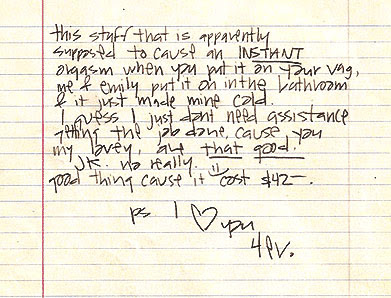 this stuff that is apparently
supposed to cause an INSTANT
orgasm when you put it on your vag,
me & emily put it on in the bathroom
& it just made mine cold.
I guess I just dont need assistance
getting the job done, cause you
my lovey, are that good.
jk. no really. =)
good thing cause it cost $42-.
ps I ♡ you
4 EV.